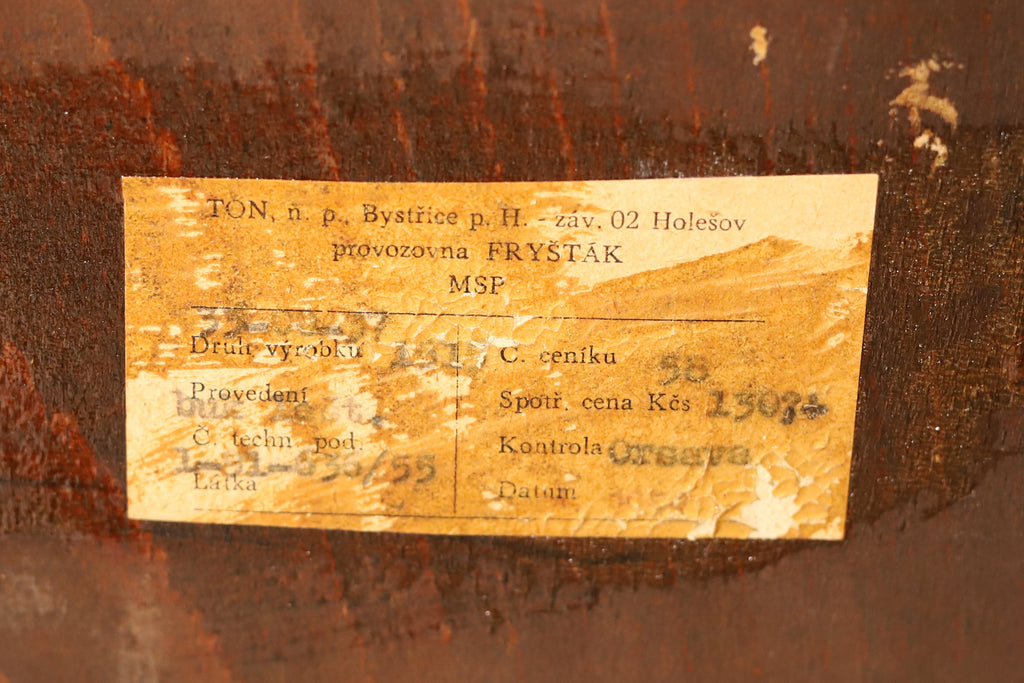 TON, n. p., Bystřice p. H. - záv. 02 Holešov
provozovna FRYŠTÁK
MSP
Druh výrobku
Provedení
Č. techn. pod.
1-31-030/55
Látka
C. ceníku 58
Spotř. cena Kčs 1307
Kontrola
Datum